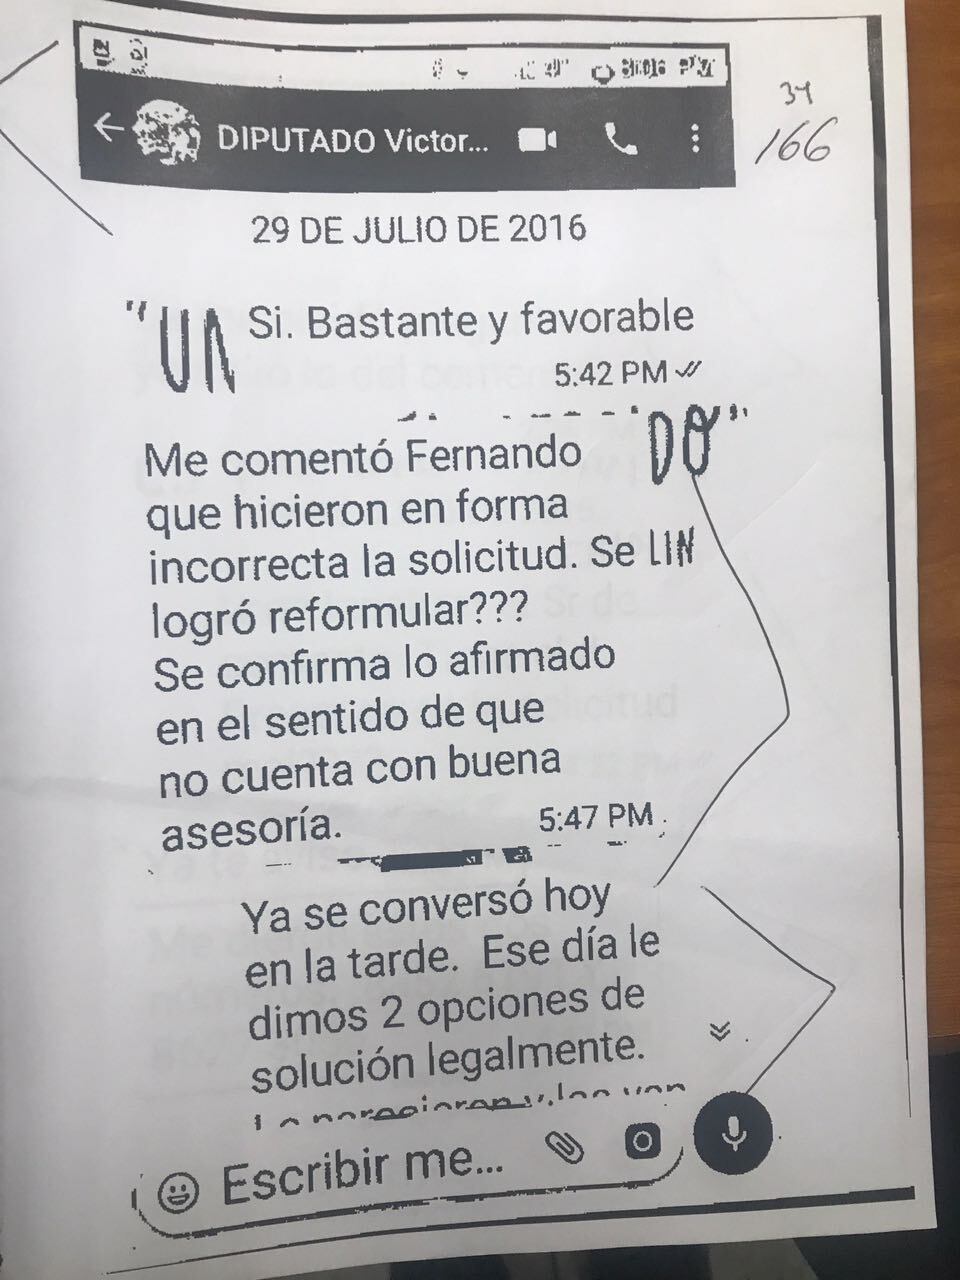 34
166
DIPUTADO Victor...
29 DE JULIO DE 2016
"UN
Si. Bastante y favorable
5:42 PM
DO"
Me comentó Fernando
que hicieron en forma
incorrecta la solicitud. Se LIN
logró reformular???
Se confirma lo afirmado
en el sentido de que
no cuenta con buena
asesoría.
5:47 PM
Ya se conversó hoy
en la tarde. Ese día le
dimos 2 opciones de
solución legalmente.
Escribir me...